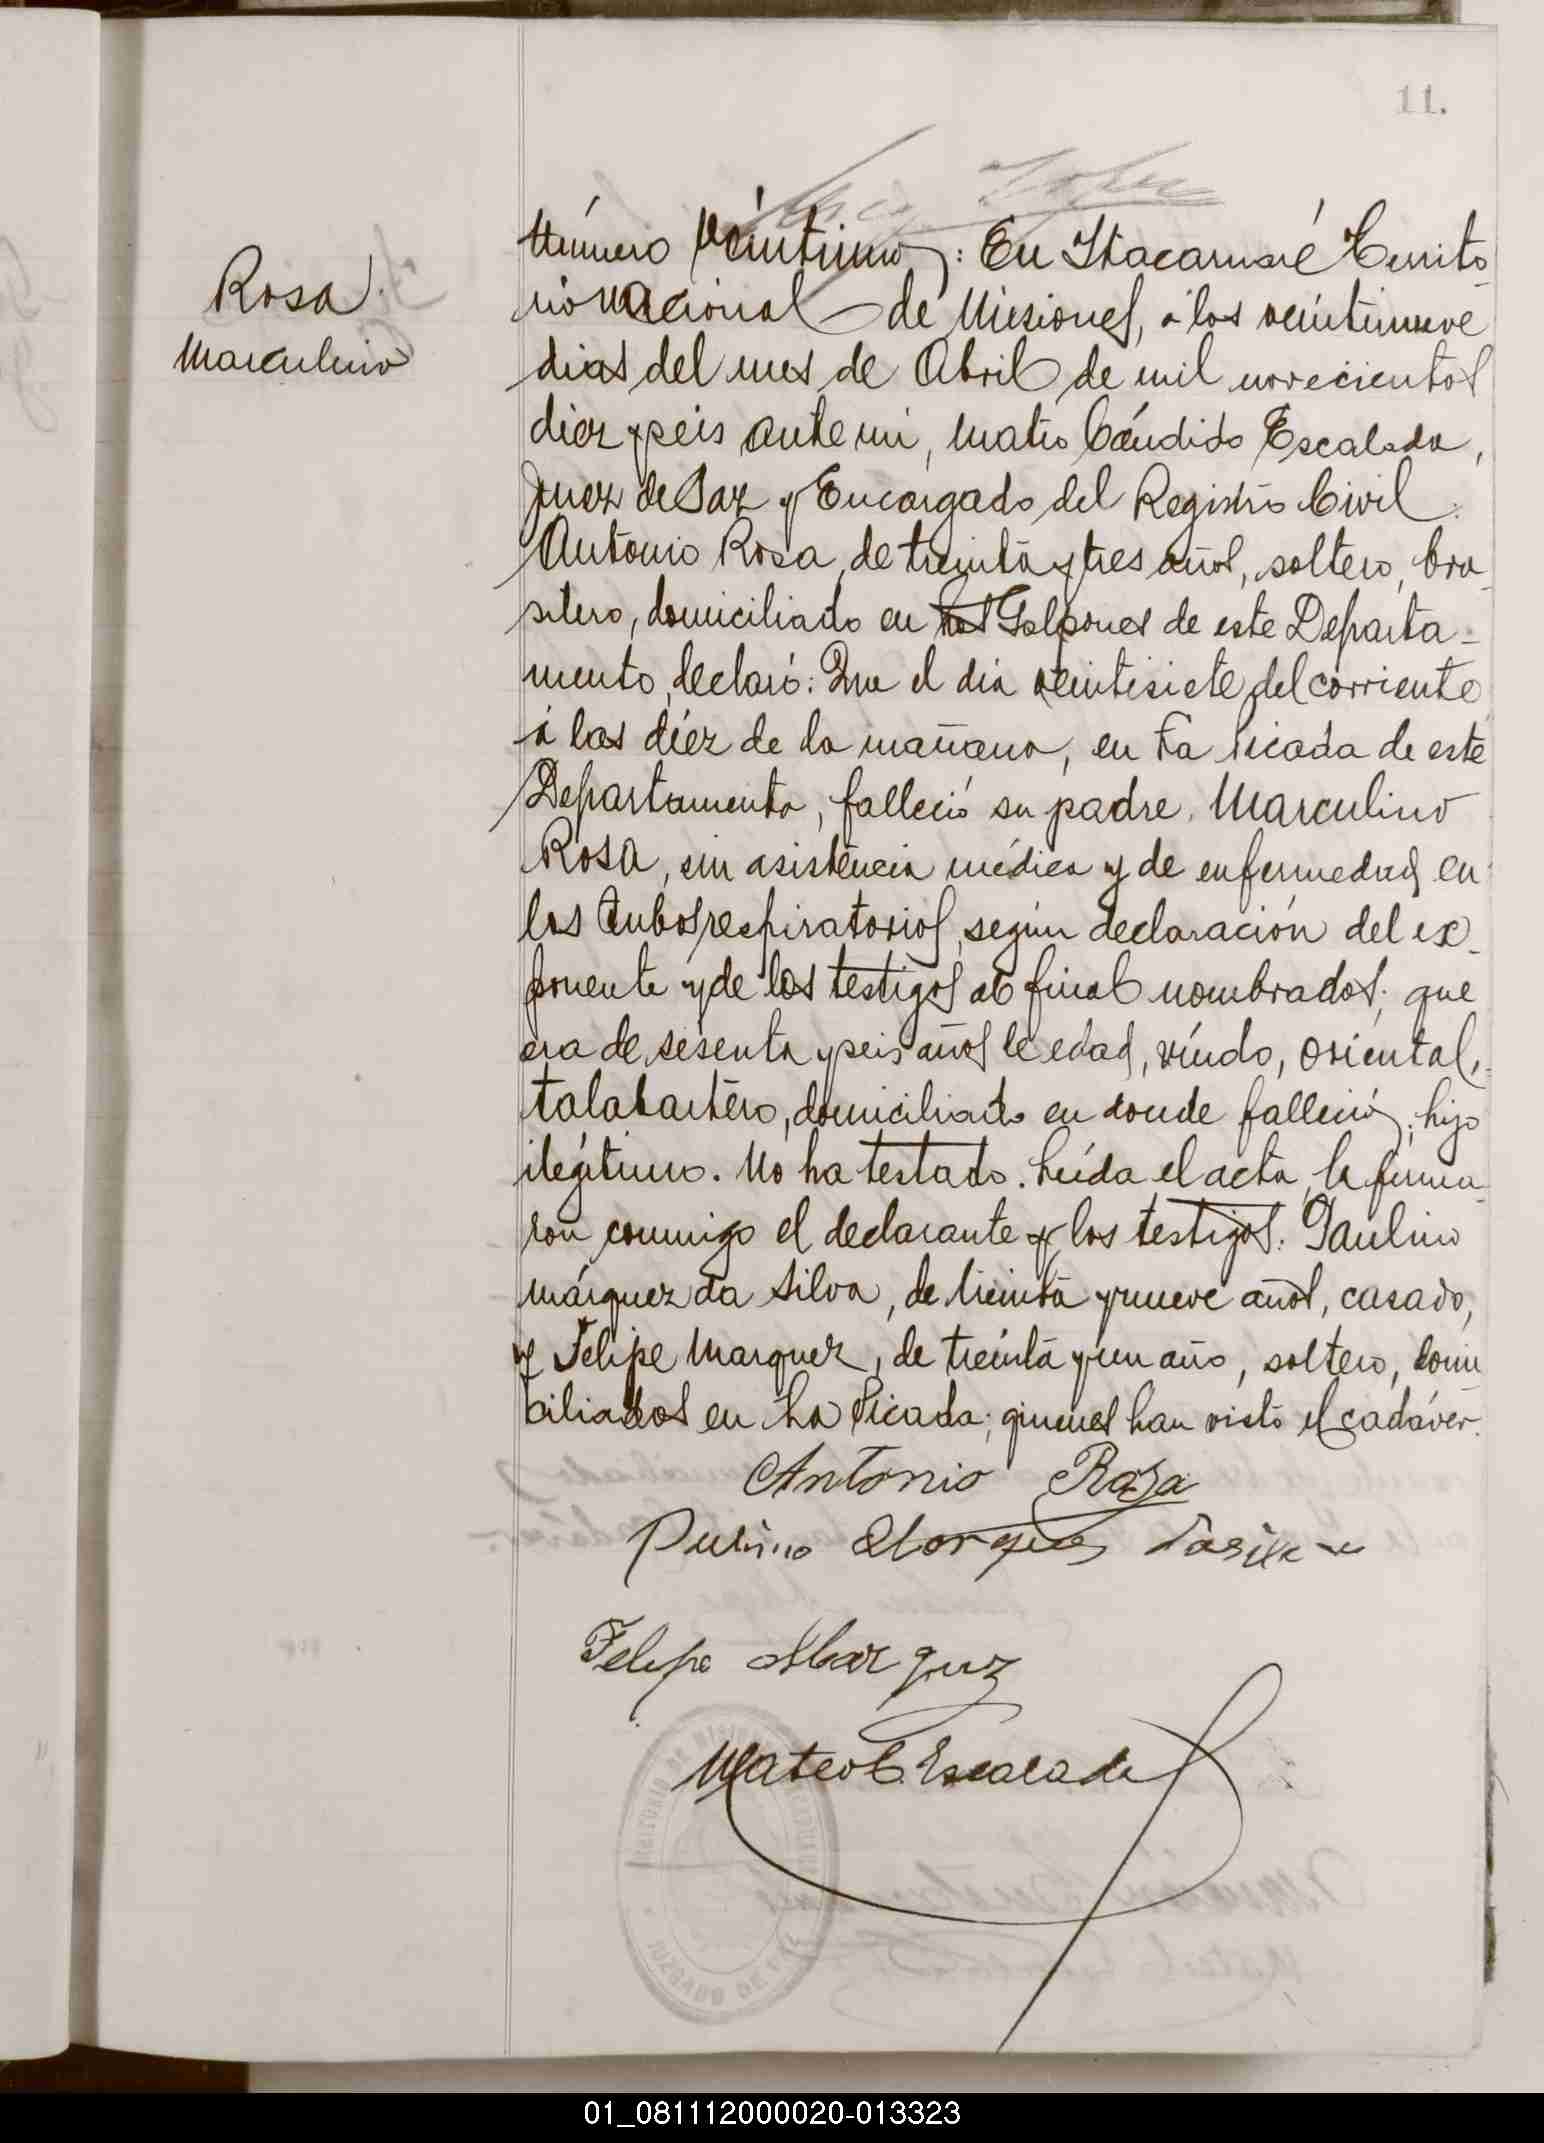 11.
Rosa
Marculino
Número Veintiuno: En Itacaruaré Territo-
rio nacional de Misiones, á los veintinueve
dias del mes de Abril de mil novecientos
diez y seis ante mi, Mateo Cándido Escalada,
Juez de Paz y Encargado del Registro Civil.
Antonio Rosa, de treinta y tres años, soltero, bra-
silero, domiciliado en los Galpones de este Departa-
mento, declaró: Que el dia veintisiete del corriente
á las diez de la mañana, en La Picada de este
Departamento, falleció su padre, Marculino
Rosa, sin asistencia médica y de enfermedad en
los tubos respiratorios, según declaración del ex-
ponente y de los testigos al final nombrados; que
era de sesenta y seis años de edad, viudo, oriental,
talabartero, domiciliado en donde falleció; hijo
ilegítimo. No ha testado. Leída el acta, la firma-
ron conmigo el declarante y los testigos: Paulino
Márquez da Silva, de treinta y nueve años, casado,
y Felipe Marquez, de treinta y un año, soltero, domi
ciliados en La Picada; quienes han visto el cadáver.
Antonio Raza
Pulino Marques
Felipe Marquez
Mateo C. Escalada
JUZGADO DE PAZ
01_081112000020-013323